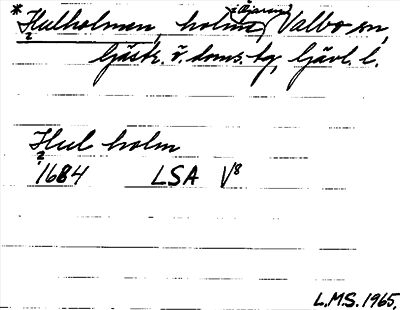 *Hulholmen, holme Valbo sn,
Gästr. v. doms. tg, Gävl. l.
Hul holm
1684 LSA V8
L.M.S. 1965.